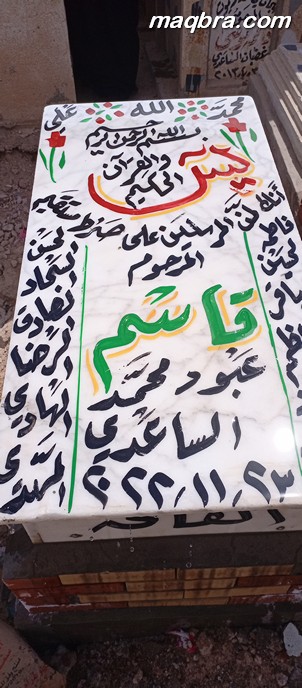 maqbra.com
محمد الله علي
بسم الله الرحمن الرحيم
يس
والقرآن
الحكيم
إنك لمن المرسلين على صراط مستقيم
المرحوم
قاسم
عبود محمد
الساعدي
٢٠٢٢/١١/٢٣
فاطمة
الحسين
الباقر
الكاظم
الحسن
السجاد
الصادق
الرضا
الهادي
المهدي
الفاتحة
الساعدي